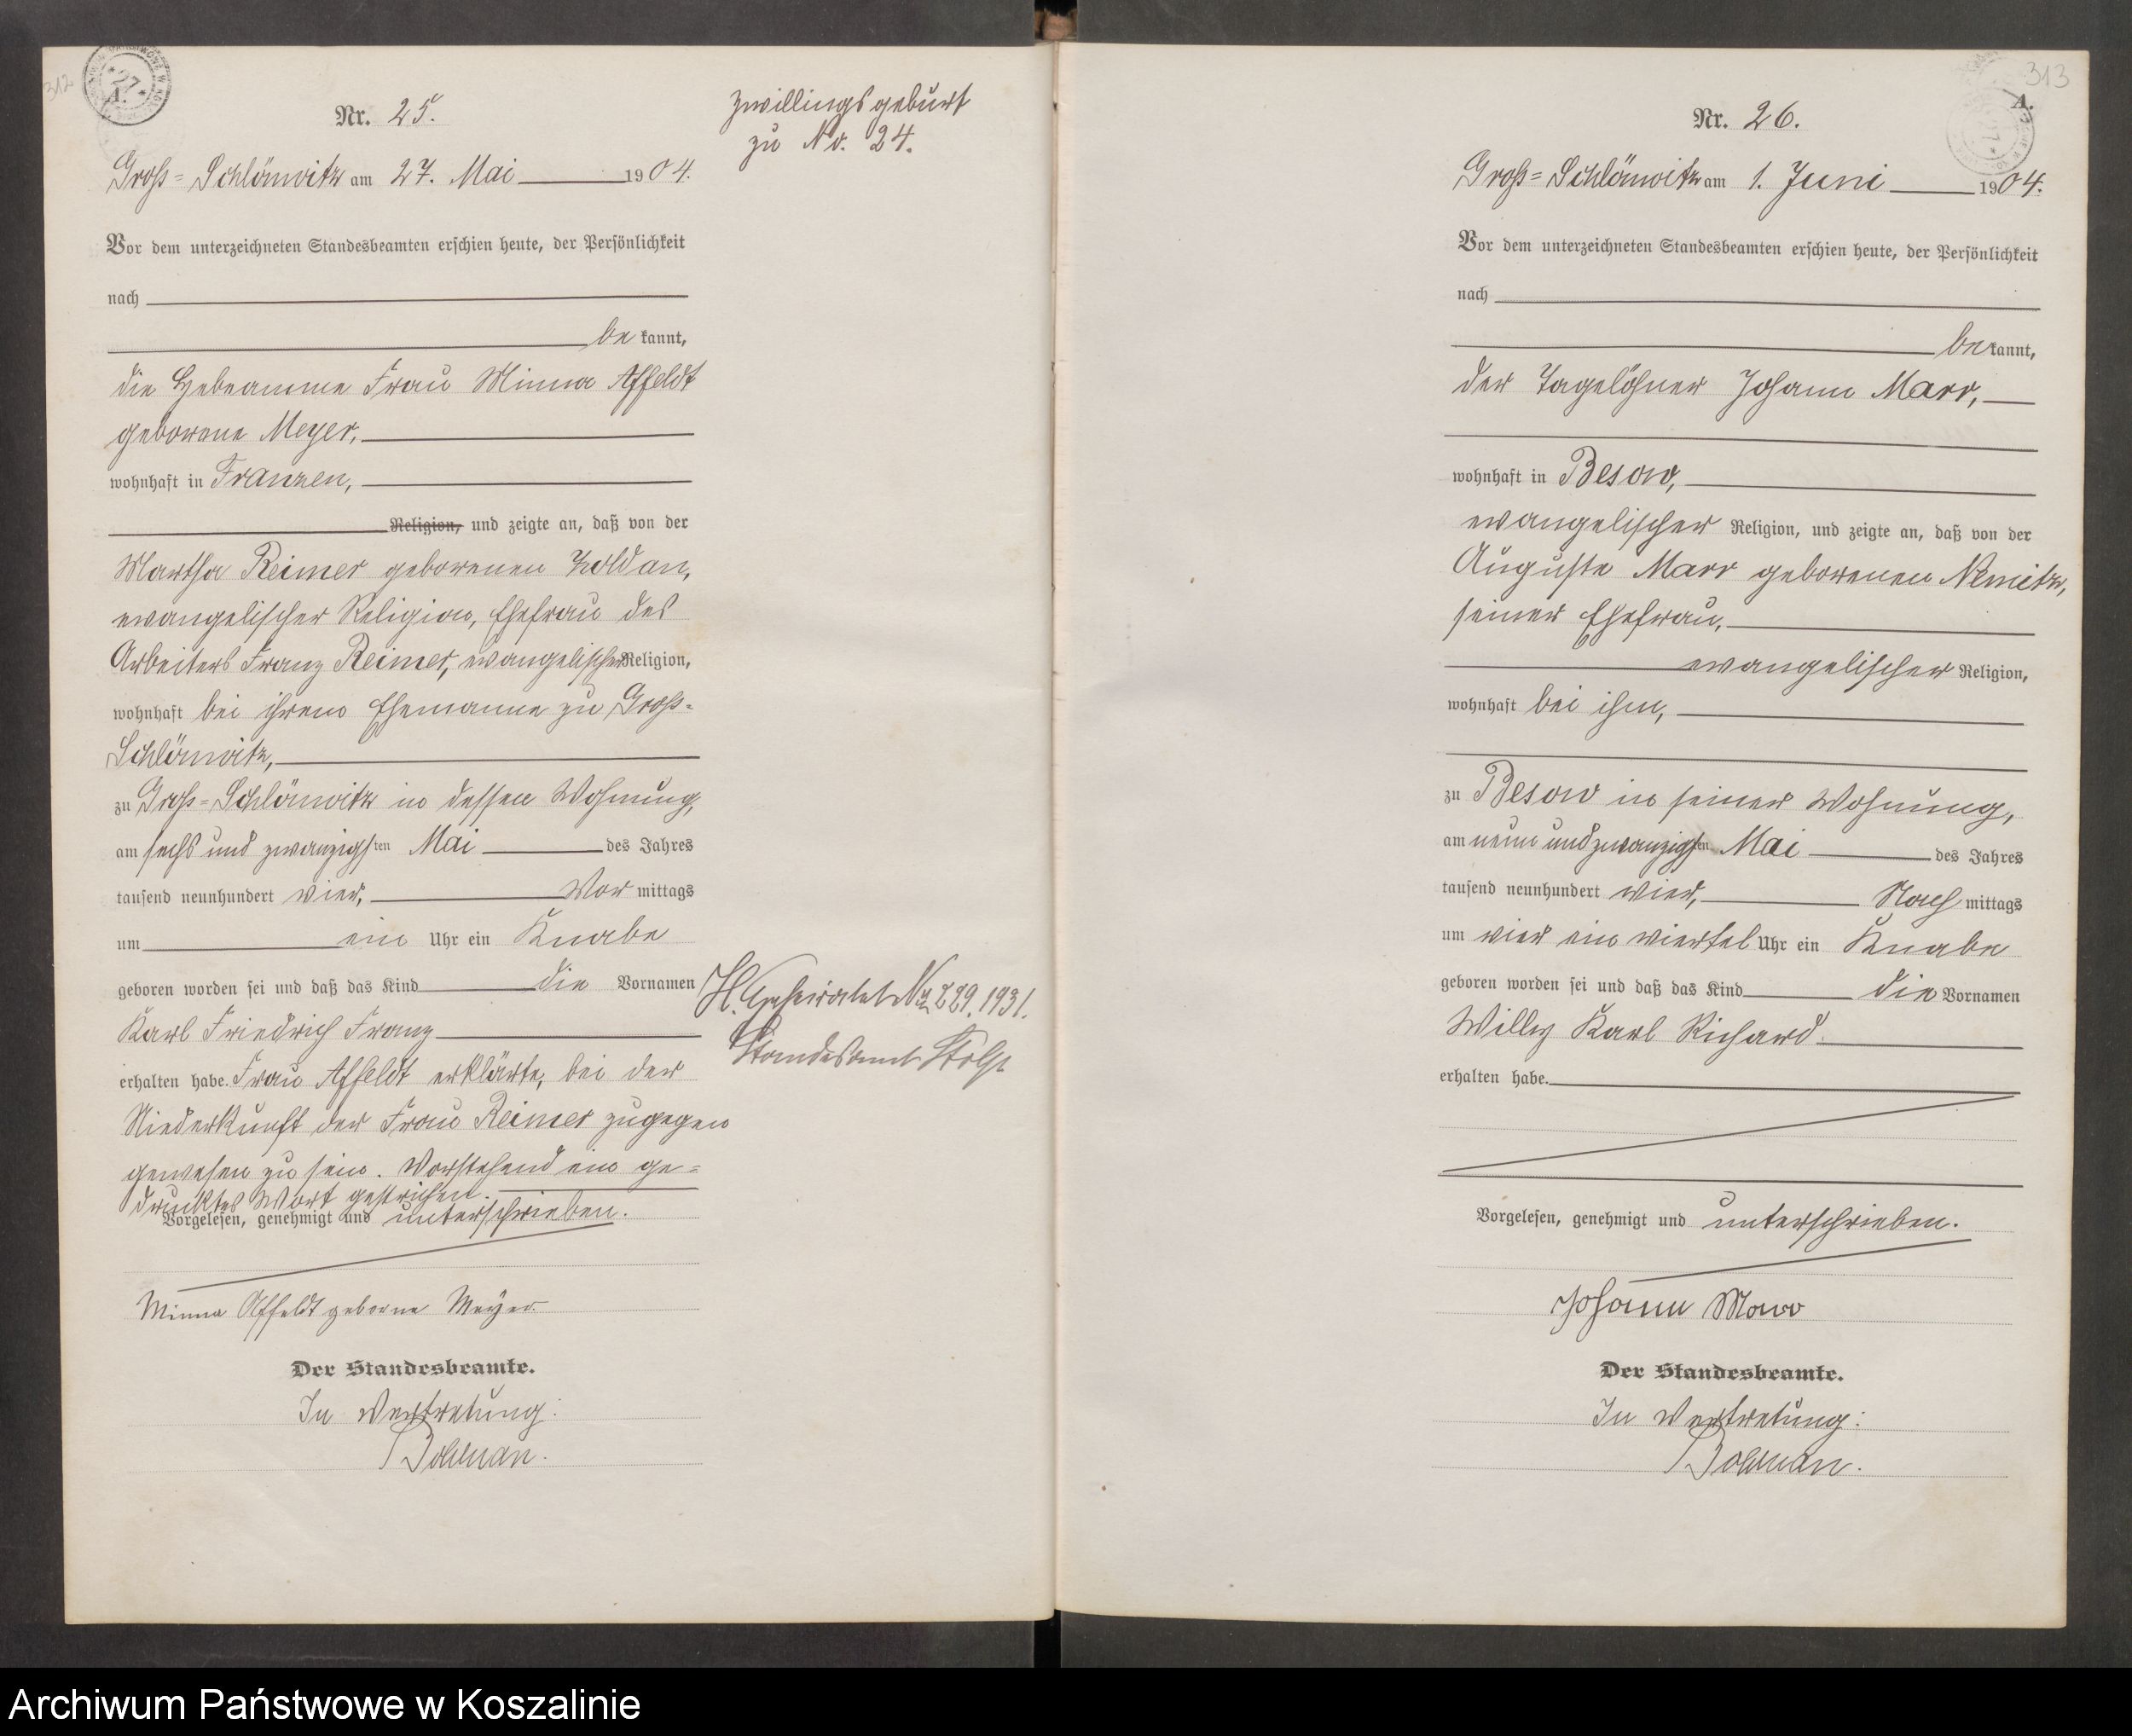 312
27
A.
Nr. 25.
Zwillingsgeburt
zu No. 24.
Groß-Schlönwitz am 27. Mai 1904.
Vor dem unterzeichneten Standesbeamten erschien heute, der Persönlichkeit
nach
bekannt,
die Hebeamme Frau Minna Affeldt
geborene Meyer,
wohnhaft in Franzen,
Religion, und zeigte an, daß von der
Martha Reimer geborenen Zoldan,
evangelischer Religion, Ehefrau des
Arbeiters Franz Reimer, evangelischer Religion,
wohnhaft bei ihrem Ehemanne zu Groß-
Schlönwitz,
zu Groß-Schlönwitz in dessen Wohnung,
am sechs und zwanzigsten Mai des Jahres
tausend neunhundert vier, Vormittags
um ein Uhr ein Knabe
geboren worden sei und daß das Kind die Vornamen
Karl Friedrich Franz
erhalten habe. Frau Affeldt erklärte, bei der
Niederkunft der Frau Reimer zugegen
gewesen zu sein. Vorstehend ein ge-
drucktes Wort gestrichen.
Vorgelesen, genehmigt und unterschrieben.
Minna Affeldt geborne Meyer
Der Standesbeamte.
In Vertretung:
H. Geheiratet Nr. 229. 1931.
Standesamt Stolp
313
A.
Nr. 26.
Groß-Schlönwitz am 1. Juni 1904.
Vor dem unterzeichneten Standesbeamten erschien heute, der Persönlichkeit
nach
bekannt,
der Tagelöhner Johann Marr,
wohnhaft in Besow,
evangelischer Religion, und zeigte an, daß von der
Auguste Marr geborenen Nemitz,
seiner Ehefrau,
evangelischer Religion,
wohnhaft bei ihm,
zu Besow in seiner Wohnung,
am neun und zwanzigsten Mai des Jahres
tausend neunhundert vier, Nachmittags
um vier ein viertel Uhr ein Knabe
geboren worden sei und daß das Kind die Vornamen
Willy Karl Richard
erhalten habe.
Vorgelesen, genehmigt und unterschrieben.
Johann Marr
Der Standesbeamte.
In Vertretung:
Archiwum Państwowe w Koszalinie